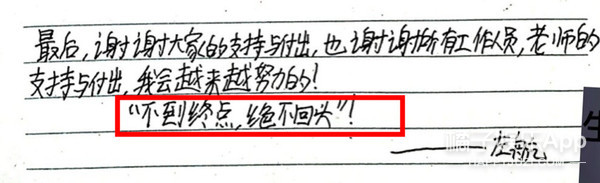 最后,谢谢大家的支持与付出,也谢谢所有工作人员,老师的
支持与付出,我会越来越努力的!
“不到终点,绝不回头”!